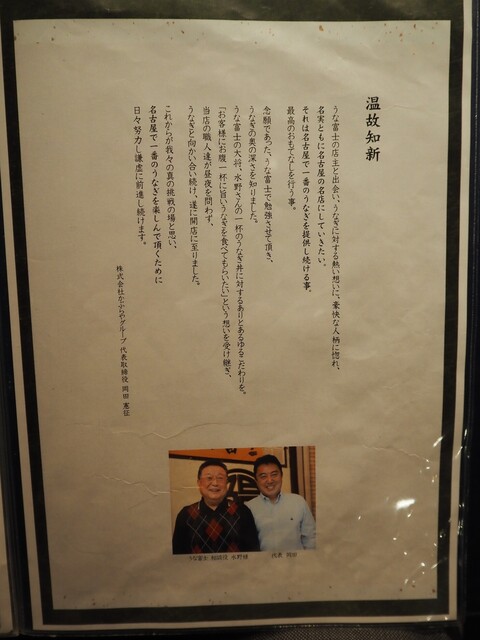 温故知新
うな富士の店主と出会い、うなぎに対する熱い想いに、豪快な人柄に惚れ、
名実ともに名古屋の名店にしていきたい、
それは名古屋で一番のうなぎを提供し続ける事。
最高のおもてなしを行う事。
念願であった、うな富士で勉強させて頂き、
うなぎの奥の深さを知りました。
うな富士の大谷、水野さんの一杯のうなぎ丼に対するありとあらゆるこだわりを。
「お客様にお腹一杯に旨いうなぎを食べてもらいたい」という想いを受け継ぎ、
当店の職人達が昼夜を問わず、
うなぎと向かい合い続け、遂に開店に至りました。
これからが我々の真の挑戦の場と思い、
名古屋で一番のうなぎを楽しんで頂くために
日々努力し謙虚に前進し続けます。
株式会社かぶらやグループ 代表取締役 岡田 憲征
うな富士 相談役 水野 代表 岡田